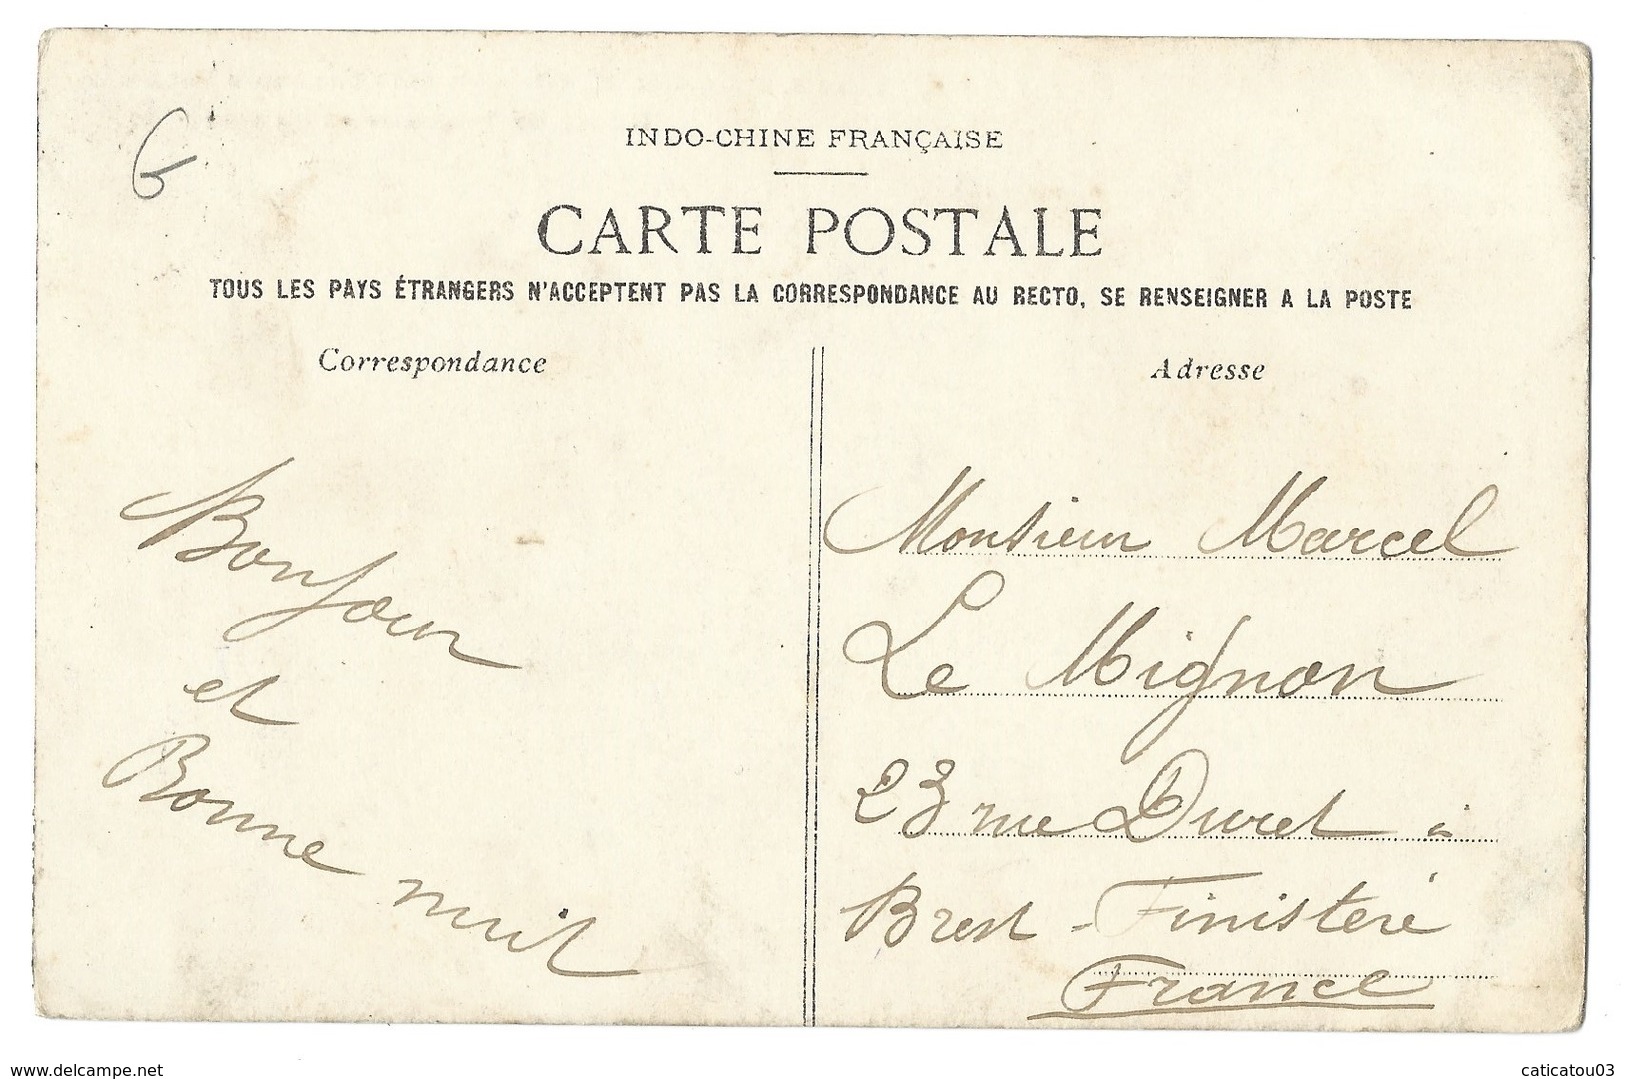 INDO-CHINE FRANÇAISE
CARTE POSTALE
TOUS LES PAYS ÉTRANGERS N'ACCEPTENT PAS LA CORRESPONDANCE AU RECTO, SE RENSEIGNER A LA POSTE
Correspondance
Bonjour
et
Bonne nuit
Adresse
Monsieur Marcel
Le Mignon
23 rue Duret à
Brest - Finistere
France
www.delcampe.net
caticatou03